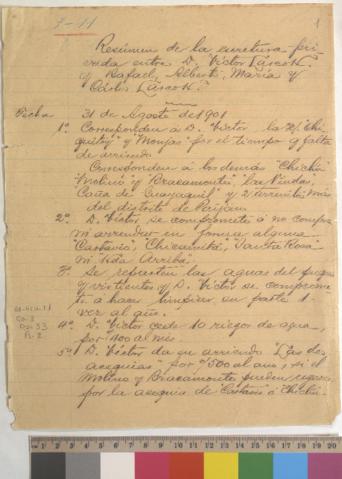 7-11
1
Resúmen de la escritura pri-
vada entre D. Victor Larco H.
y Rafael, Alberto, Maria y
Carlos Larco H.
Fecha 31 de Agosto de 1901
1º Corresponden á D. Victor la "Chi
quitoy" y "Monjas" por el tiempo q. falta
de arriendo.
Corresponden á los demás "Chiclin"
"Molino" y "Bracamonte", las Viudas,
Caña de Guayaquil y 2 terrenitos más
del distrito de Paijan.
2º D. Victor se compromete á no comprar
ni arrendar en forma alguna
"Cartavio", "Chicamita", "Santa Rosa"
ni "Toda Arriba".
3º Se repartirán las aguas del
y vertientes y D. Victor se comprome
te á hacer limpiar su parte 1
vez al año.
4º D. Victor cede 10 riegos de agua,
por 400 al mes.
5º D. Victor da en arriendo "Las dos
acequias" por 500 al año, si el
Molino y Bracamonte pueden regarse
por la acequia de Cartavio ó Chiclin.
1 2 3 4 5 6 7 8 9 10 11 12 13 14 15 16 17 18 19 20